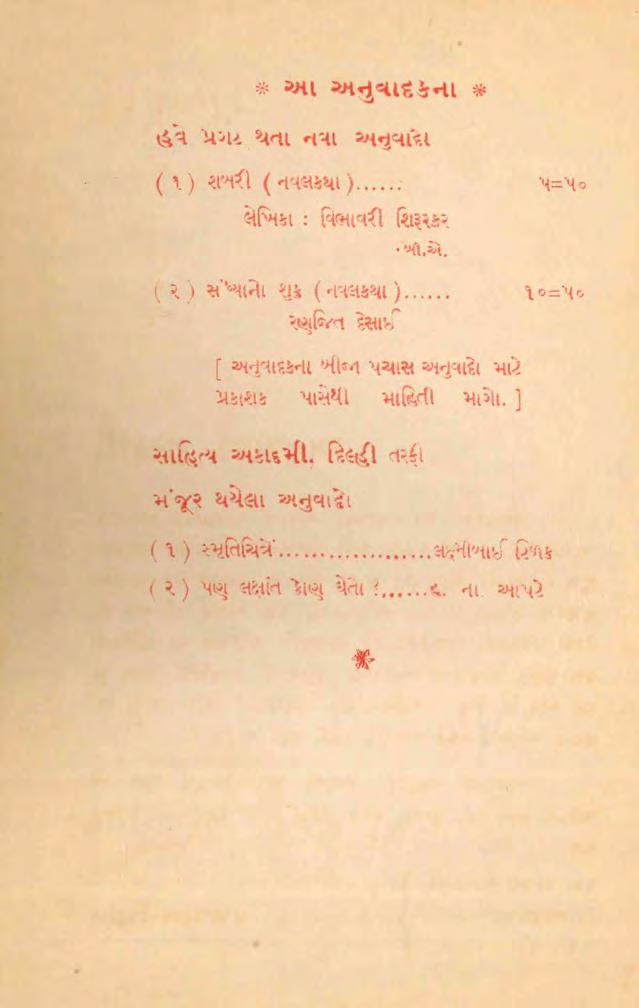 * આ અનુવાદકના *
હવે પ્રગટ થતા નવા અનુવાદો
( ૧ ) શબરી ( નવલકથા )...... ૫=૫૦
લેખિકા : વિભાવરી શિરૂરકર
બી.એ.
( ૨ ) સંધ્યાનો શુક્ર ( નવલકથા )...... ૧૦=૫૦
રણજિત દેસાઈ
[ અનુવાદકના બીજા પચાસ અનુવાદો માટે
પ્રકાશક પાસેથી માહિતી માગો. ]
સાહિત્ય અકાદમી, દિલ્હી તરફી
મંજૂર થયેલા અનુવાદો
( ૧ ) સ્મૃતિચિત્રેં...................લક્ષ્મીબાઈ ટિળક
( ૨ ) પણ લક્ષાંત કોણ ઘેતો !......હ. ના. આપટે